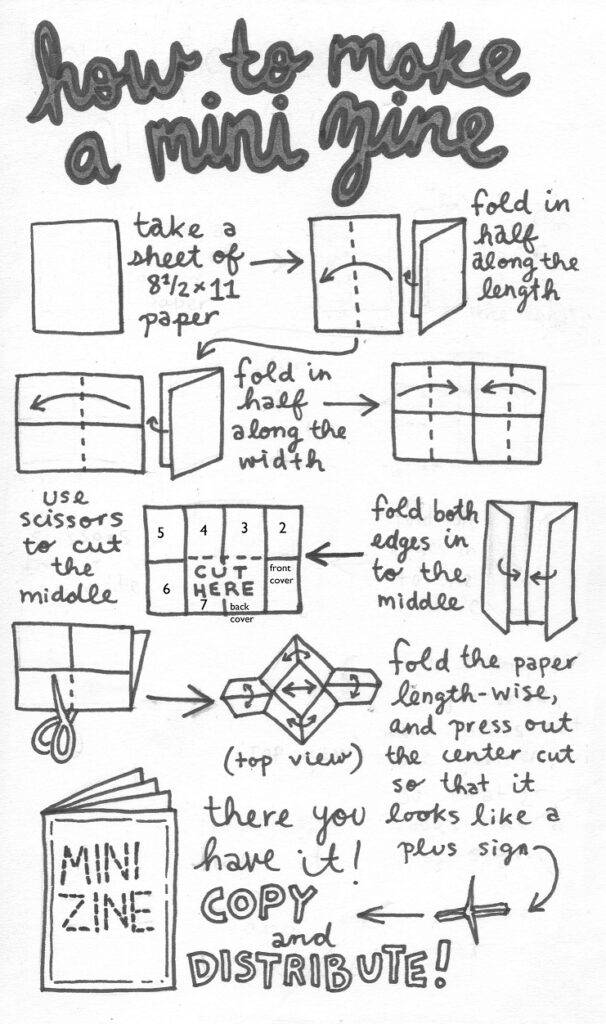 how to make
a mini zine
take a
sheet of
8 1/2 x 11
paper
fold in
half
along the
length
fold in
half
along the
width
fold both
edges in
to the
middle
use
scissors
to cut
the
middle
5 4 3 2
CUT
HERE
6 7 back
cover
front
cover
fold the paper
length-wise,
and press out
the center cut
so that it
looks like a
plus sign
(top view)
there you
have it!
COPY
and
DISTRIBUTE!
MINI
ZINE